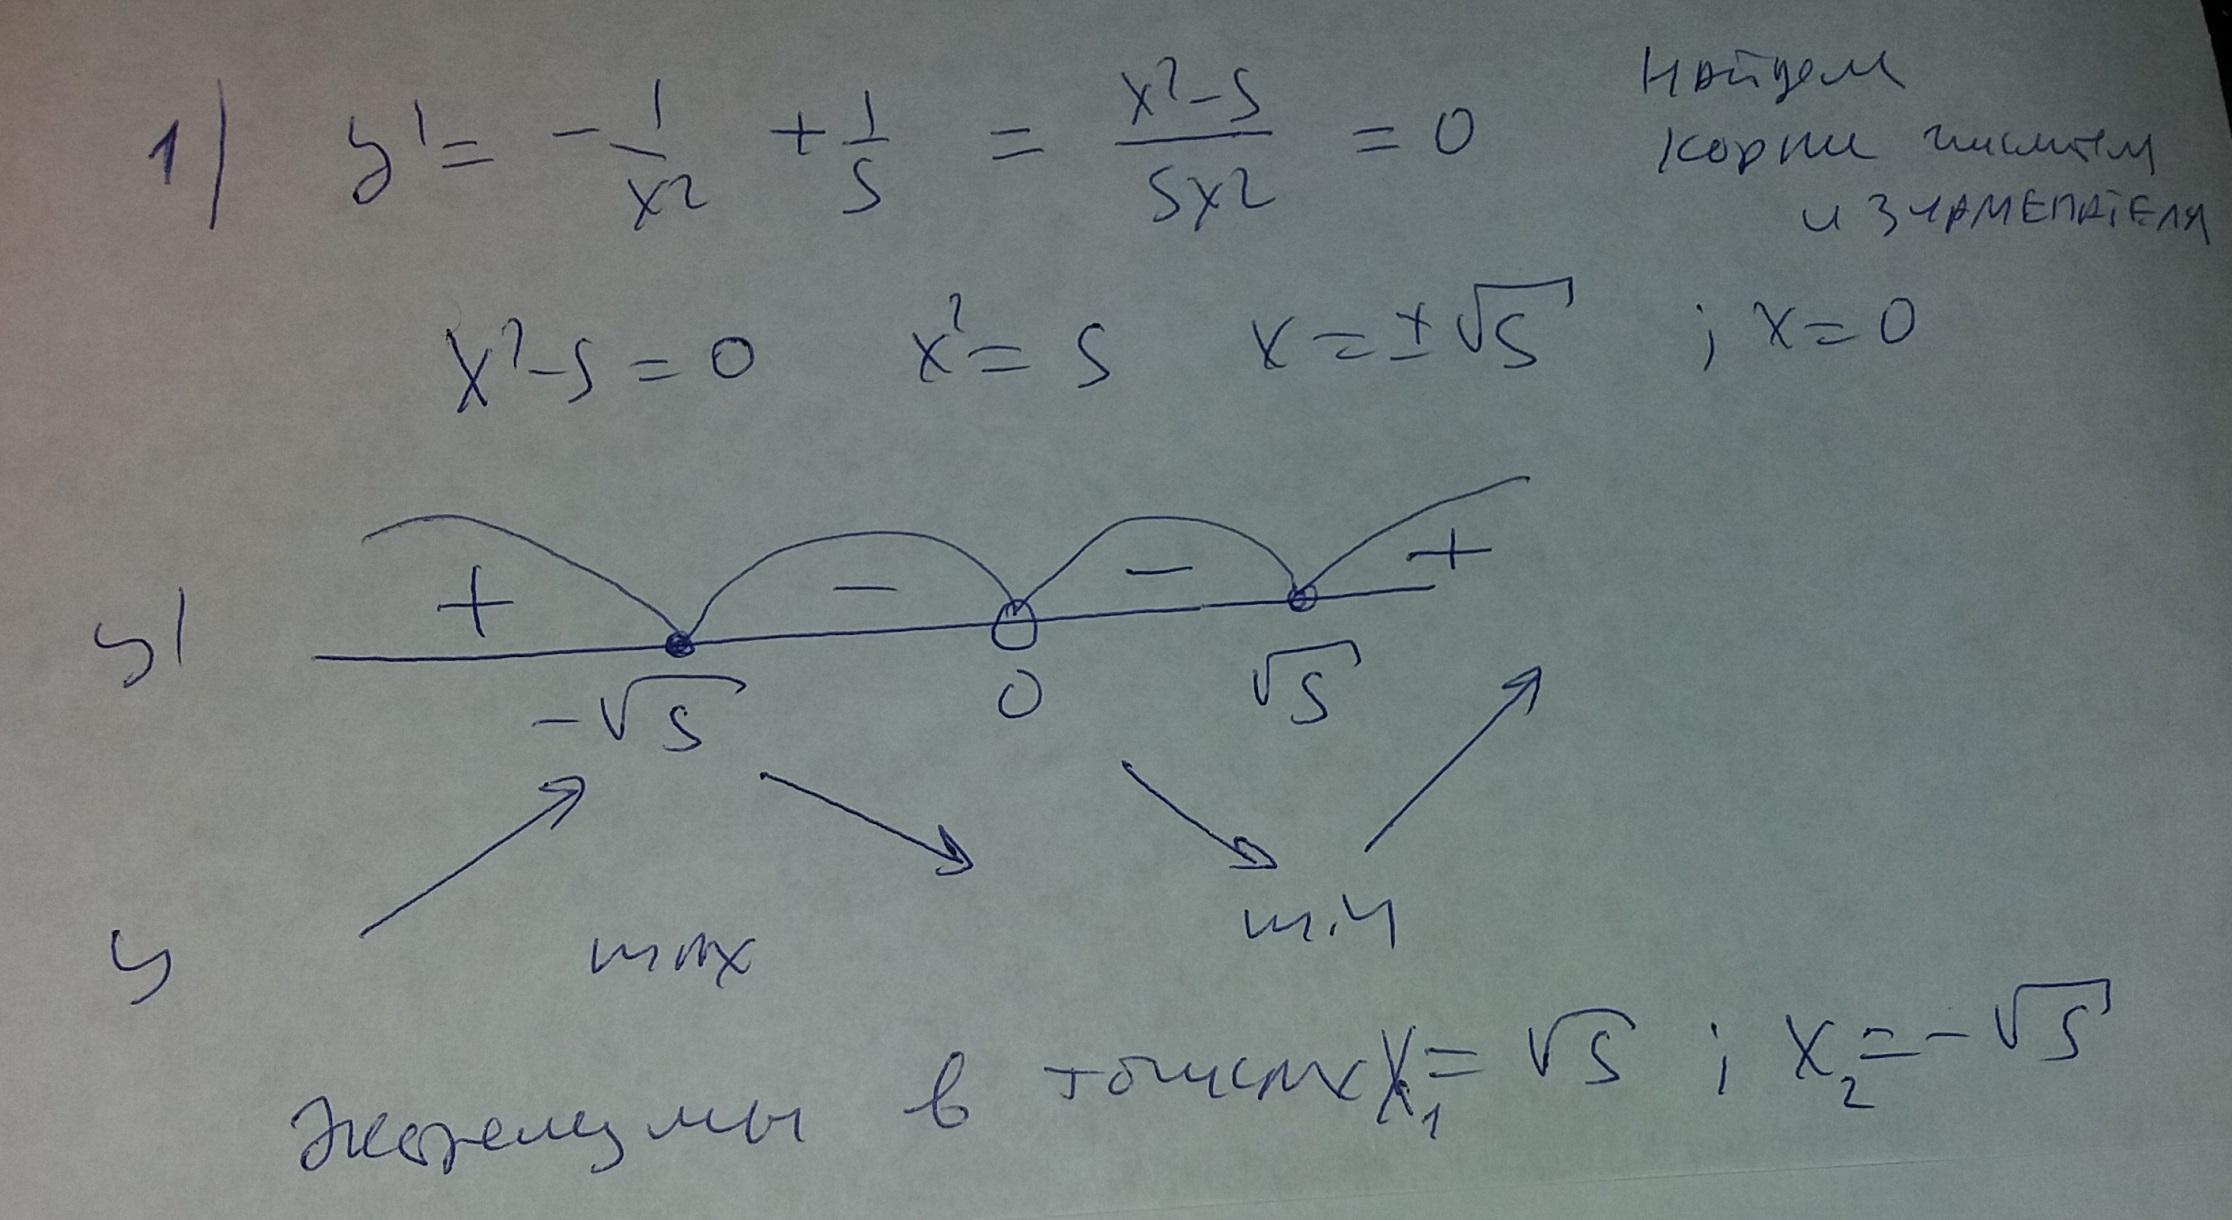 1) y' = -1/x² + 1/5 = (x²-5)/(5x²) = 0
Найдем
корни числителя
и знаменателя
x²-5=0 x²=5 x=±√5 ; x=0
+ - - +
y'
-√5 0 √5
y max min
Экстремумы в точках x₁=√5 ; x₂=-√5